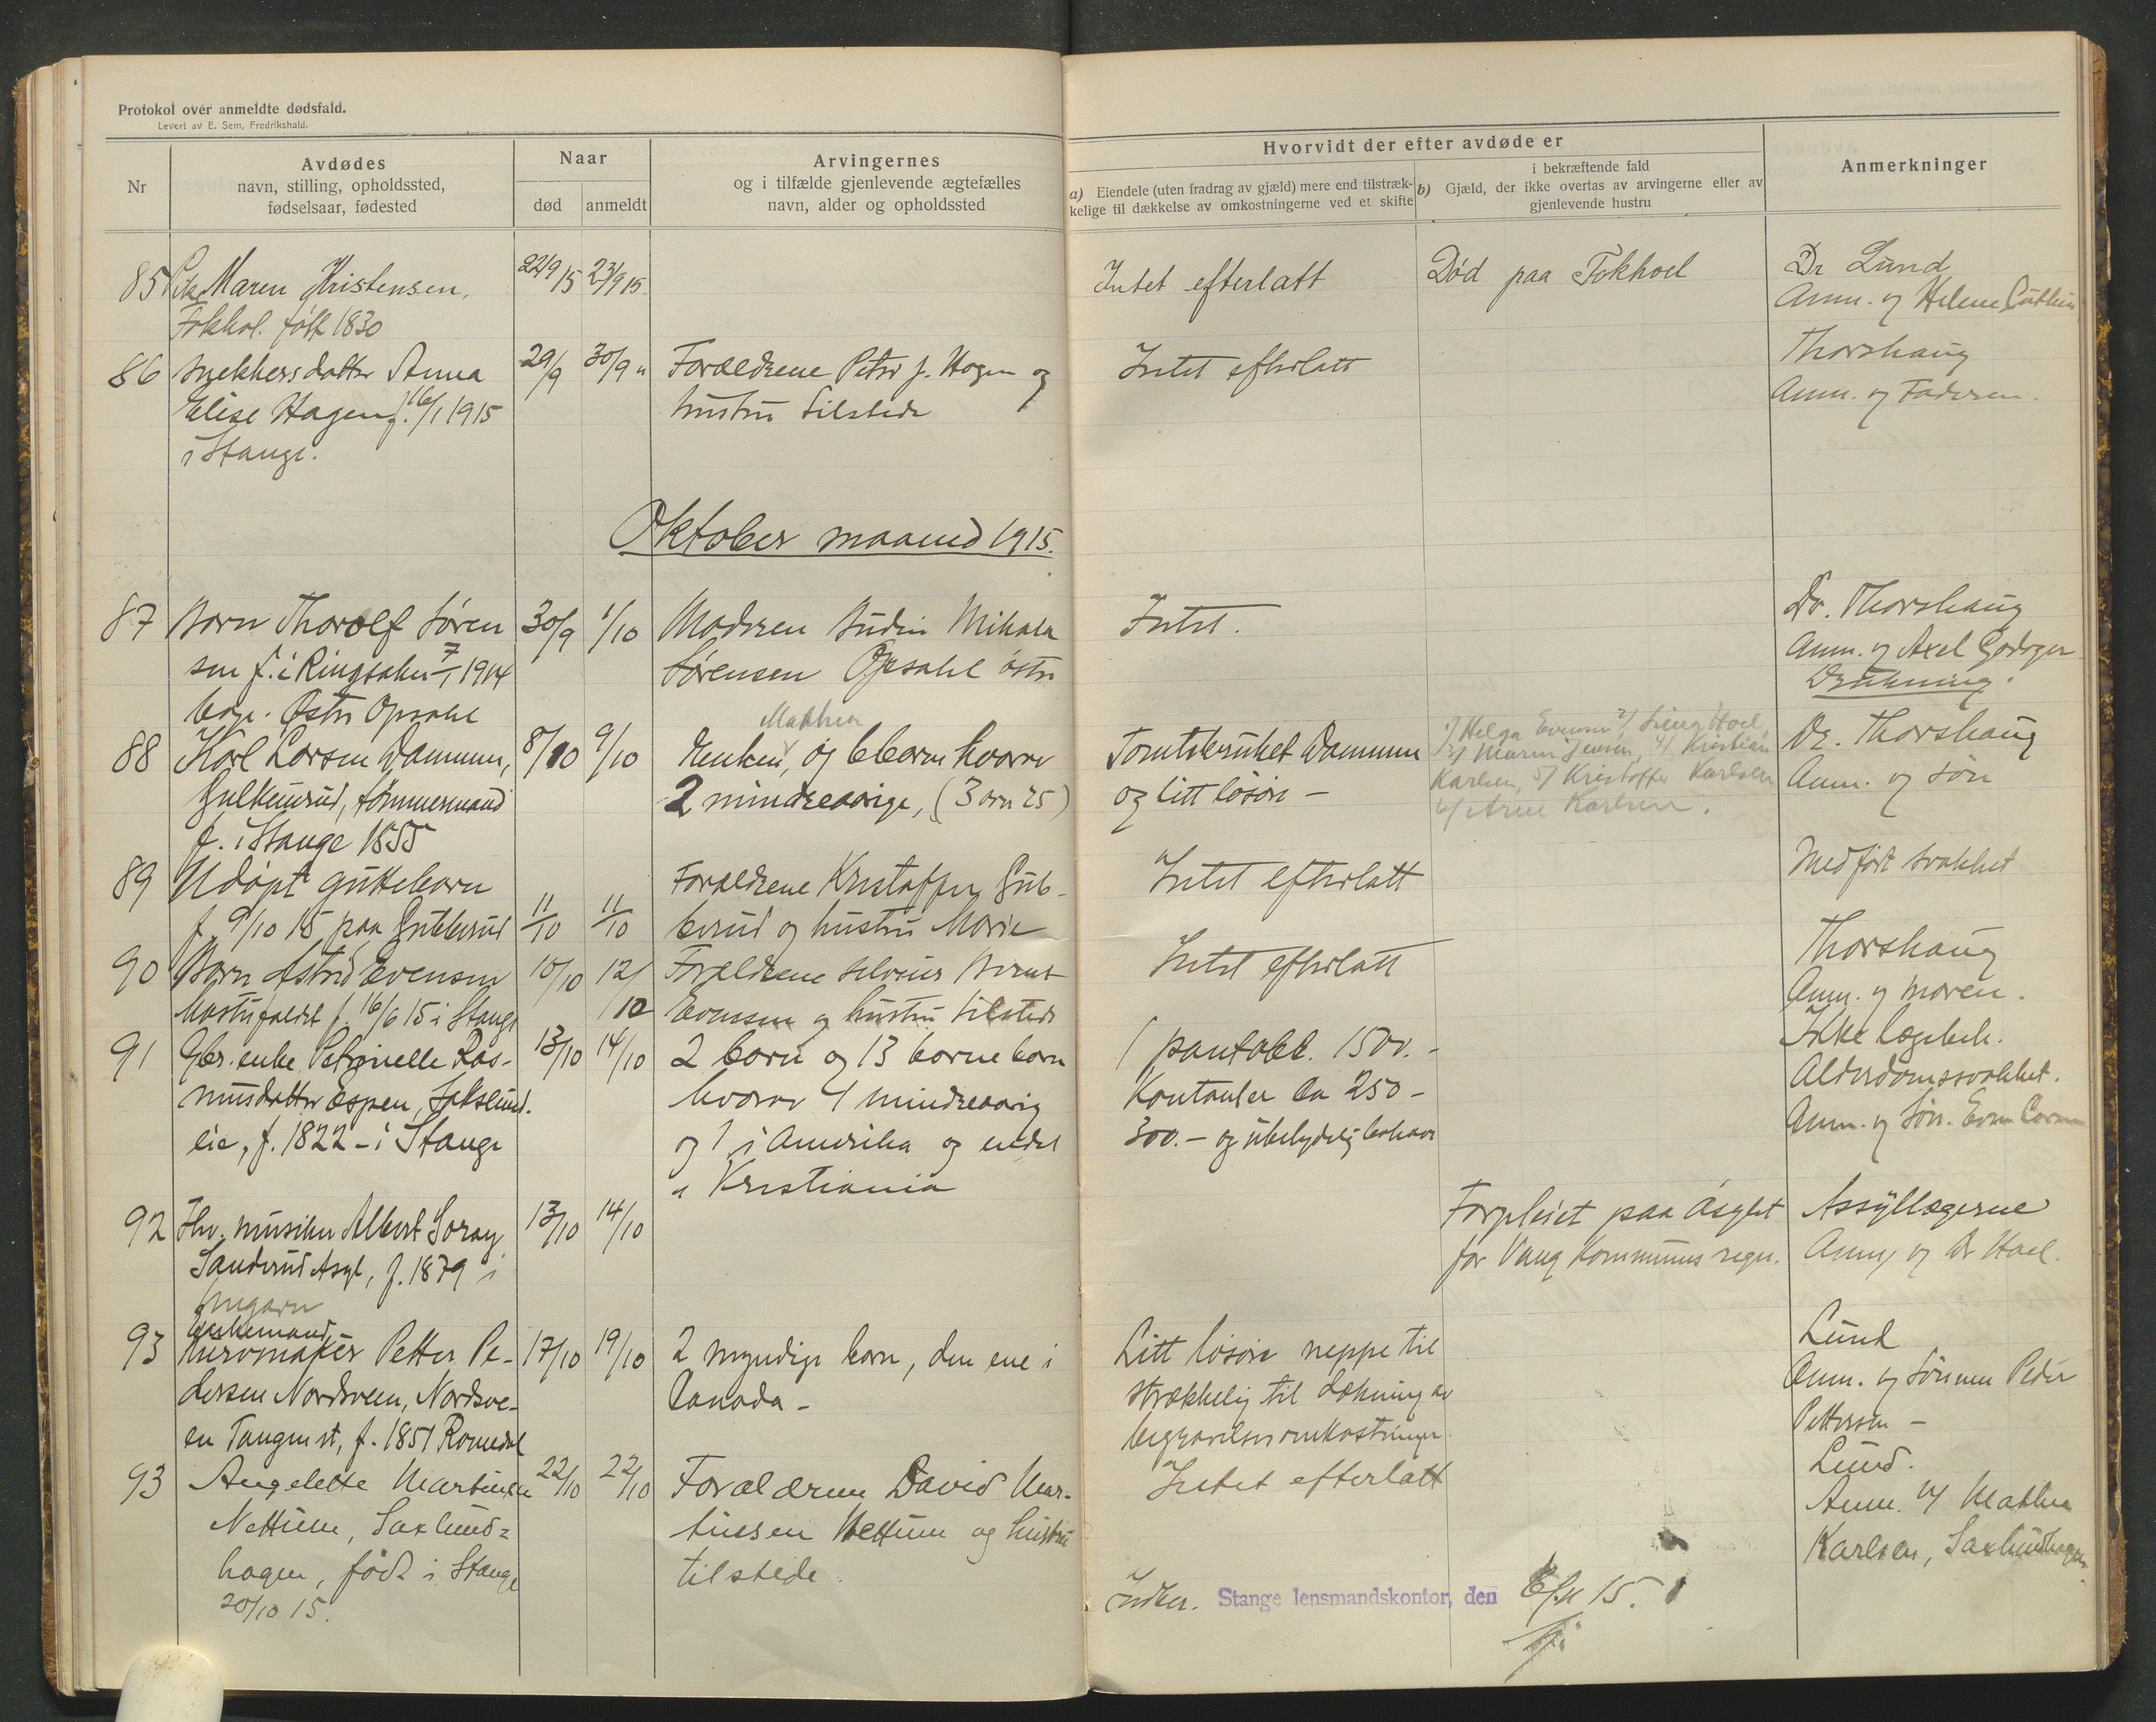 Protokol over anmeldte dødsfald.
Levert av E. Sem, Fredrikshald.
Nr
Avdødes
navn, stilling, opholdssted,
fødselsaar, fødested
Naar
død
anmeldt
Arvingernes
og i tilfælde gjenlevende ægtefælles
navn, alder og opholdssted
Hvorvidt der efter avdøde er
a) Eiendele (uten fradrag av gjæld) mere end tilstræk-
kelige til dækkelse av omkostningerne ved et skifte
i bekræftende fald
b) Gjæld, der ikke overtas av arvingerne eller av
gjenlevende hustru
Anmerkninger
85 Maren Kristensen,
født 1830
22/9 15
23/9 15
Intet efterlatt
Død paa Fokhoel
Dr Lund
Anm. v/ Helene
86
Snekkersdatter Anna
Elise Hagen f. 16/1 1915
i Stange.
29/9
30/9 "
Forældrene Peter J. Hagen og
hustru tilstede
Intet efterlatt
Thorshaug
Anm. v/ Faderen.
Oktober maaned 1915.
87
Barn Thorolf Søren
sen f. i Ringsaker 7/1 1914
Østre Opsahl
30/9
1/10
Moderen
Sørensen Opsahl østre
Intet.
Dr. Thorshaug
Anm. v/ Axel
Drukning.
88
Karl Larsen Dammen,
Gulkunrud, tømmermand
f. i Stange 1855
8/10
9/10
Mathea
Enken, og 6 barn hvorav
2 mindreaarige, (3 over 25)
Tomtebruket Dammen
og litt løsøre –
1/ Helga Evensen 2/ Hoel,
3/ Maren Jensen, 4/ Kristian
Karlsen, 5/ Kristoffer Karlsen
6/ Arne Karlsen.
Dr. Thorshaug
Anm. v/ søn
89
Udøpt guttebarn
f. 9/10 15 paa Gubberud
11/10
11/10
Forældrene Kristoffer Gub-
berud og hustru Marie
Intet efterlatt
Medfødt svakhet
90
Barn Astrid Evensen
f. 16/6 15 i Stange
10/10
12/10
Forældrene
Evensen og hustru tilstede
Intet efterlatt
Thorshaug
Anm. v/ moren.
91
Gbr. enke Petronelle Ras-
musdatter Espen, Sakslund.
eie, f. 1822 – i Stange
13/10
14/10
2 barn og 13 barnebarn
hvorav 4 mindreaarig
og 1 i Amerika og endel
i Kristiania
1 pantobl. 1500.-
Kontanter ca 250-
300.- og ubetydelig
Ikke lægebeh.
Alderdomssvakhet.
Anm. v/ Søn.
92
Fhv. musiker Albert Soray
Sanderud Asyl, f. 1879 i
Ungarn
13/10
14/10
Forpleiet paa asylet
for Vang Kommunes regn.
Assyllægerne
Anm v/ Dr Hoel.
93
Petter Pe-
dersen Nordsveen, Nordsve-
en Tangen st, f. 1851 Romedal
17/10
19/10
2 myndige barn, den ene i
Canada –
Litt løsøre neppe til
strækkelig til dækning av
begravelsesomkostninger.
Lund
Anm. v/ sønnen Peder
Pettersen –
93
Angelette Martinsen
Nettum, Saxlund=
hagen, født i Stange
20/10 15.
22/10
22/10
Forældrene David Mar-
tinsen Nettum og hustru
tilstede.
Intet efterlatt
Lund.
Anm. v/ Mathea
Karlsen, Saxlundhagen
Indber. Stange lensmandskontor, den